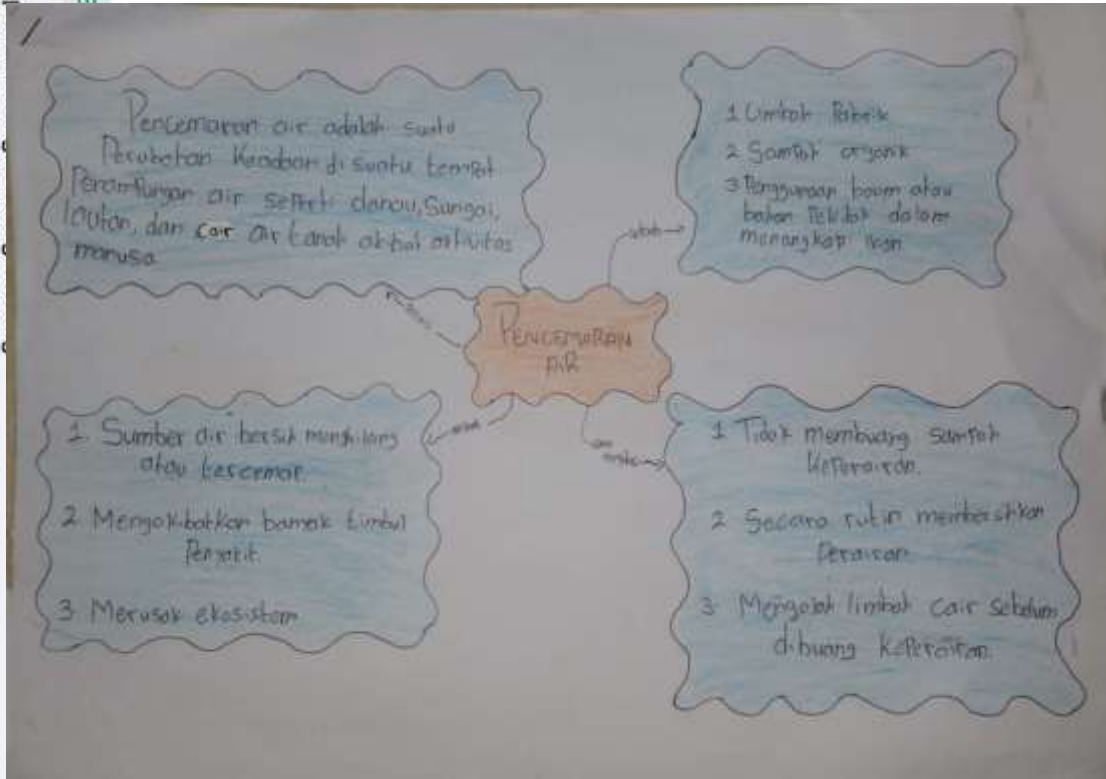 Pencemaran air adalah suatu
Perubahan Keadaan di suatu tempat
Penampungan air seperti danau, Sungai,
lautan, dan car air tanah akibat aktivitas
manusa
1 Limbah Pabrik
2 Sampah organik
3 Penggunaan boum atau
bahan Peledak dalam
menangkap ikan
sebab
PENCEMARAN
AIR
1 Sumber air bersih menghilang
atau tercemar
2 Mengakibatkan banyak timbul
Penyakit.
3 Merusak ekosistem
1 Tidak membuang sampah
KePerairan.
2 Secara rutin membersihkan
Perairan
3 Mengolah limbah cair sebelum
dibuang KePerairan.